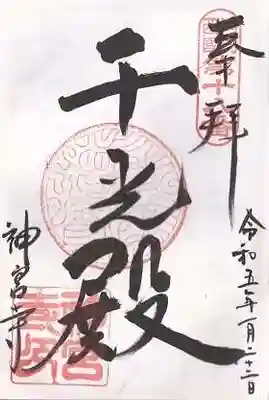 奉拝
千光殿
神宮寺
令和五年一月二十二日